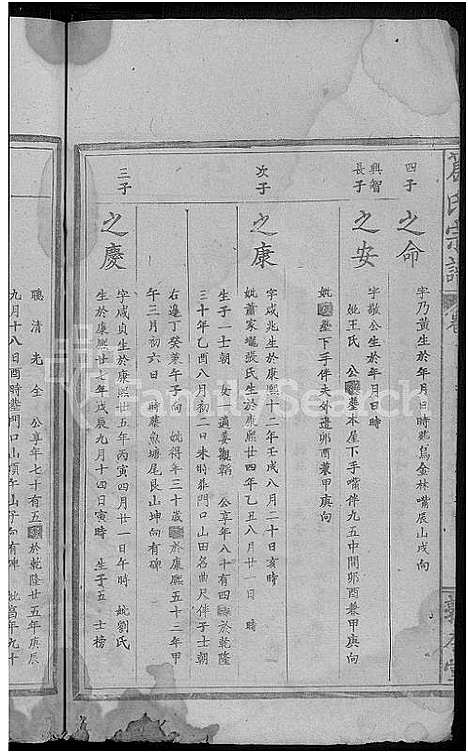 氏宗譜
四子
之命
字乃黃生於年月日時葬烏金林嘴辰山戌向
興智長子
之安
字敬公生於年月日時
妣王氏 公葬木屋下手嘴伴九五中間卯酉兼甲庚向
妣葬下手伴夫外邊卯酉兼甲庚向
次子
之康
字咸兆生於康熙十二年壬戌八月二十日亥時
妣蕭家壠張氏生於康熙廿四年乙丑八月廿一日 時
生子一士朝 女一適姜觀韜 公享年八十有四歿於乾隆
三十年乙酉八月初二日未時葬門口山田名曲尺伴子士朝
右邊丁癸兼午子向 妣得年三十歲歿於康熙五十三年甲
午三月初六日 時葬魚塘尾艮山坤向有碑
三子
之慶
字咸貞生於康熙廿五年丙寅四月廿一日午時 妣劉氏
生於康熙廿七年戊辰九月十四日寅時 生子五 士榜
聰 清 光 全 公享年七十有五歿於乾隆廿五年庚辰
九月十八日酉時葬門口山
FamilySearch